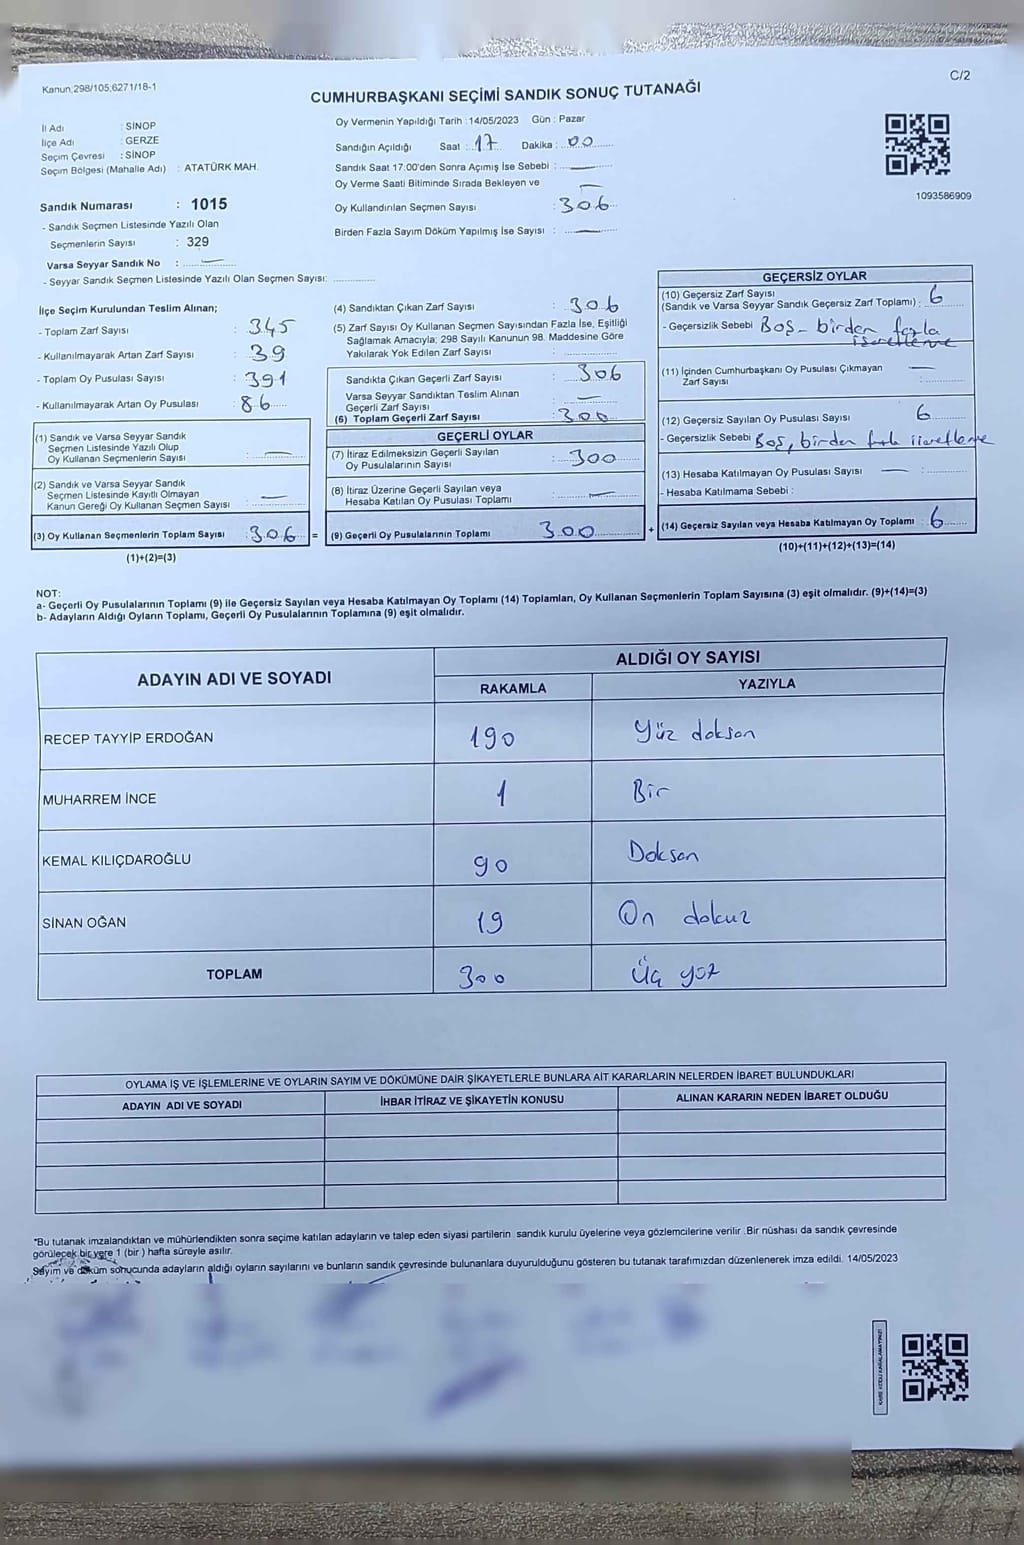 Kanun;298/105;6271/18-1
C/2
CUMHURBAŞKANI SEÇİMİ SANDIK SONUÇ TUTANAĞI
İl Adı : SİNOP
İlçe Adı : GERZE
Seçim Çevresi : SİNOP
Seçim Bölgesi (Mahalle Adı) : ATATÜRK MAH.
Oy Vermenin Yapıldığı Tarih : 14/05/2023 Gün : Pazar
Sandığın Açıldığı Saat : 17 Dakika : 00
Sandık Saat 17:00'den Sonra Açımış İse Sebebi : —
Oy Verme Saati Bitiminde Sırada Bekleyen ve —
Oy Kullandırılan Seçmen Sayısı : 306
Birden Fazla Sayım Döküm Yapılmış İse Sayısı : —
1093586909
Sandık Numarası : 1015
- Sandık Seçmen Listesinde Yazılı Olan
Seçmenlerin Sayısı : 329
Varsa Seyyar Sandık No : —
- Seyyar Sandık Seçmen Listesinde Yazılı Olan Seçmen Sayısı:
İlçe Seçim Kurulundan Teslim Alınan;
- Toplam Zarf Sayısı : 345
- Kullanılmayarak Artan Zarf Sayısı : 39
- Toplam Oy Pusulası Sayısı : 391
- Kullanılmayarak Artan Oy Pusulası : 86
(1) Sandık ve Varsa Seyyar Sandık
Seçmen Listesinde Yazılı Olup
Oy Kullanan Seçmenlerin Sayısı : —
(2) Sandık ve Varsa Seyyar Sandık
Seçmen Listesinde Kayıtlı Olmayan
Kanun Gereği Oy Kullanan Seçmen Sayısı : —
(3) Oy Kullanan Seçmenlerin Toplam Sayısı : 306 =
(1)+(2)=(3)
(4) Sandıktan Çıkan Zarf Sayısı : 306
(5) Zarf Sayısı Oy Kullanan Seçmen Sayısından Fazla İse, Eşitliği
Sağlamak Amacıyla; 298 Sayılı Kanunun 98. Maddesine Göre
Yakılarak Yok Edilen Zarf Sayısı :
Sandıkta Çıkan Geçerli Zarf Sayısı : 306
Varsa Seyyar Sandıktan Teslim Alınan
Geçerli Zarf Sayısı : —
(6) Toplam Geçerli Zarf Sayısı : 300
GEÇERLİ OYLAR
(7) İtiraz Edilmeksizin Geçerli Sayılan
Oy Pusulalarının Sayısı : 300
(8) İtiraz Üzerine Geçerli Sayılan veya
Hesaba Katılan Oy Pusulası Toplamı : —
(9) Geçerli Oy Pusulalarının Toplamı 300 +
GEÇERSİZ OYLAR
(10) Geçersiz Zarf Sayısı
(Sandık ve Varsa Seyyar Sandık Geçersiz Zarf Toplamı) : 6
- Geçersizlik Sebebi Boş - birden fazla
işaretleme
(11) İçinden Cumhurbaşkanı Oy Pusulası Çıkmayan
Zarf Sayısı : —
(12) Geçersiz Sayılan Oy Pusulası Sayısı 6
- Geçersizlik Sebebi Boş, birden fazla işaretleme
(13) Hesaba Katılmayan Oy Pusulası Sayısı — :
- Hesaba Katılmama Sebebi :
(14) Geçersiz Sayılan veya Hesaba Katılmayan Oy Toplamı : 6
(10)+(11)+(12)+(13)=(14)
NOT:
a- Geçerli Oy Pusulalarının Toplamı (9) ile Geçersiz Sayılan veya Hesaba Katılmayan Oy Toplamı (14) Toplamları, Oy Kullanan Seçmenlerin Toplam Sayısına (3) eşit olmalıdır. (9)+(14)=(3)
b- Adayların Aldığı Oyların Toplamı, Geçerli Oy Pusulalarının Toplamına (9) eşit olmalıdır.
ADAYIN ADI VE SOYADI ALDIĞI OY SAYISI
RAKAMLA YAZIYLA
RECEP TAYYİP ERDOĞAN 190 Yüz doksan
MUHARREM İNCE 1 Bir
KEMAL KILIÇDAROĞLU 90 Doksan
SİNAN OĞAN 19 On dokuz
TOPLAM 300 Üç yüz
OYLAMA İŞ VE İŞLEMLERİNE VE OYLARIN SAYIM VE DÖKÜMÜNE DAİR ŞİKAYETLERLE BUNLARA AİT KARARLARIN NELERDEN İBARET BULUNDUKLARI
ADAYIN ADI VE SOYADI İHBAR İTİRAZ VE ŞİKAYETİN KONUSU ALINAN KARARIN NEDEN İBARET OLDUĞU
"Bu tutanak imzalandıktan ve mühürlendikten sonra seçime katılan adayların ve talep eden siyasi partilerin sandık kurulu üyelerine veya gözlemcilerine verilir. Bir nüshası da sandık çevresinde
görülecek bir yere 1 (bir ) hafta süreyle asılır.
Sayım ve döküm sonucunda adayların aldığı oyların sayılarını ve bunların sandık çevresinde bulunanlara duyurulduğunu gösteren bu tutanak tarafımızdan düzenlenerek imza edildi. 14/05/2023
KARE KODU KARALAMAYINIZ!